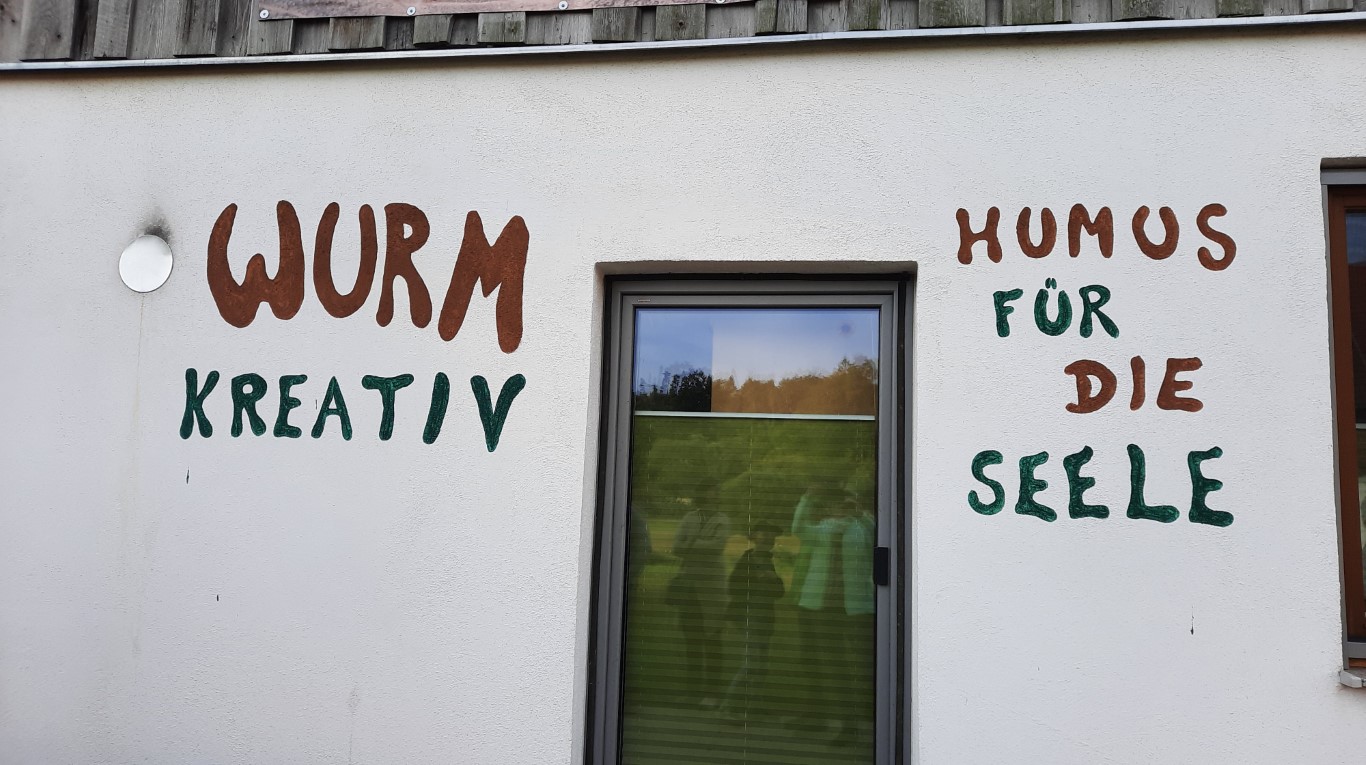 WURM
KREATIV
HUMUS
FÜR
DIE
SEELE